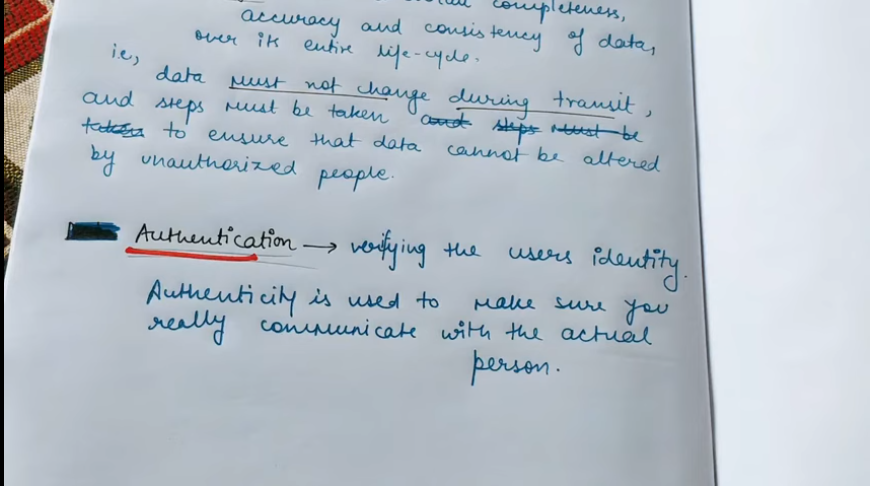 completeness,
accuracy and consistency of data,
over its entire life-cycle.
i.e, data must not change during transit,
and steps must be taken and steps must be
taken to ensure that data cannot be altered
by unauthorized people.
Authentication → verifying the users identity.
Authenticity is used to make sure you
really communicate with the actual
person.